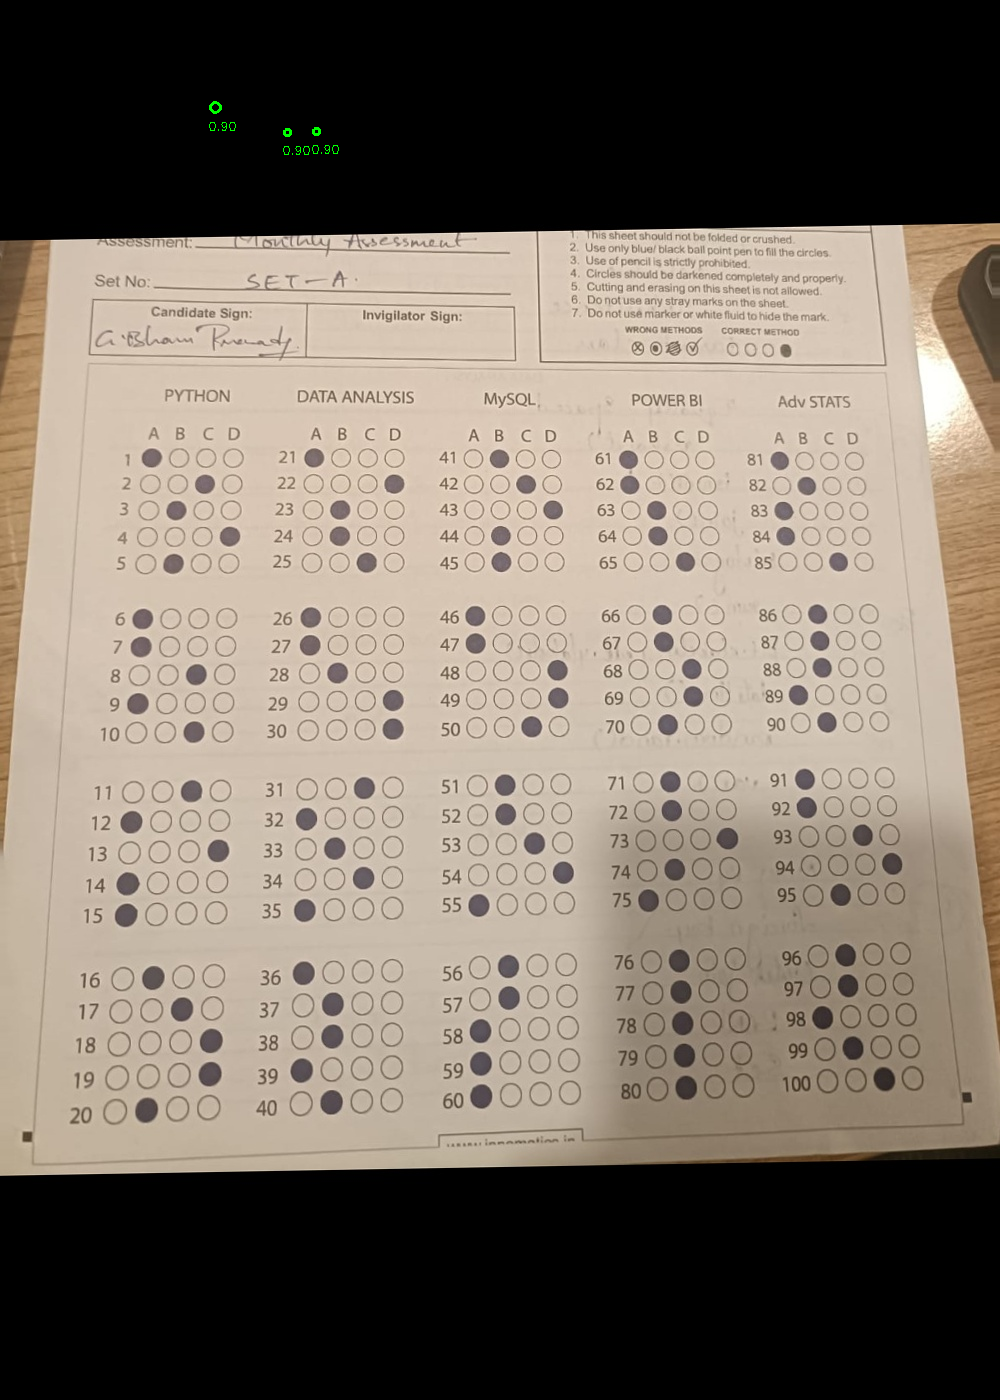 0.90
0.90 0.90
Assessment: Monthly Assessment
Set No: SET-A.
Candidate Sign:
Invigilator Sign:
1. This sheet should not be folded or crushed.
2. Use only blue/ black ball point pen to fill the circles.
3. Use of pencil is strictly prohibited.
4. Circles should be darkened completely and properly.
5. Cutting and erasing on this sheet is not allowed.
6. Do not use any stray marks on the sheet.
7. Do not use marker or white fluid to hide the mark.
WRONG METHODS CORRECT METHOD
PYTHON
A B C D
1
2
3
4
5
6
7
8
9
10
11
12
13
14
15
16
17
18
19
20
DATA ANALYSIS
A B C D
21
22
23
24
25
26
27
28
29
30
31
32
33
34
35
36
37
38
39
40
MySQL
A B C D
41
42
43
44
45
46
47
48
49
50
51
52
53
54
55
56
57
58
59
60
POWER BI
A B C D
61
62
63
64
65
66
67
68
69
70
71
72
73
74
75
76
77
78
79
80
Adv STATS
A B C D
81
82
83
84
85
86
87
88
89
90
91
92
93
94
95
96
97
98
99
100